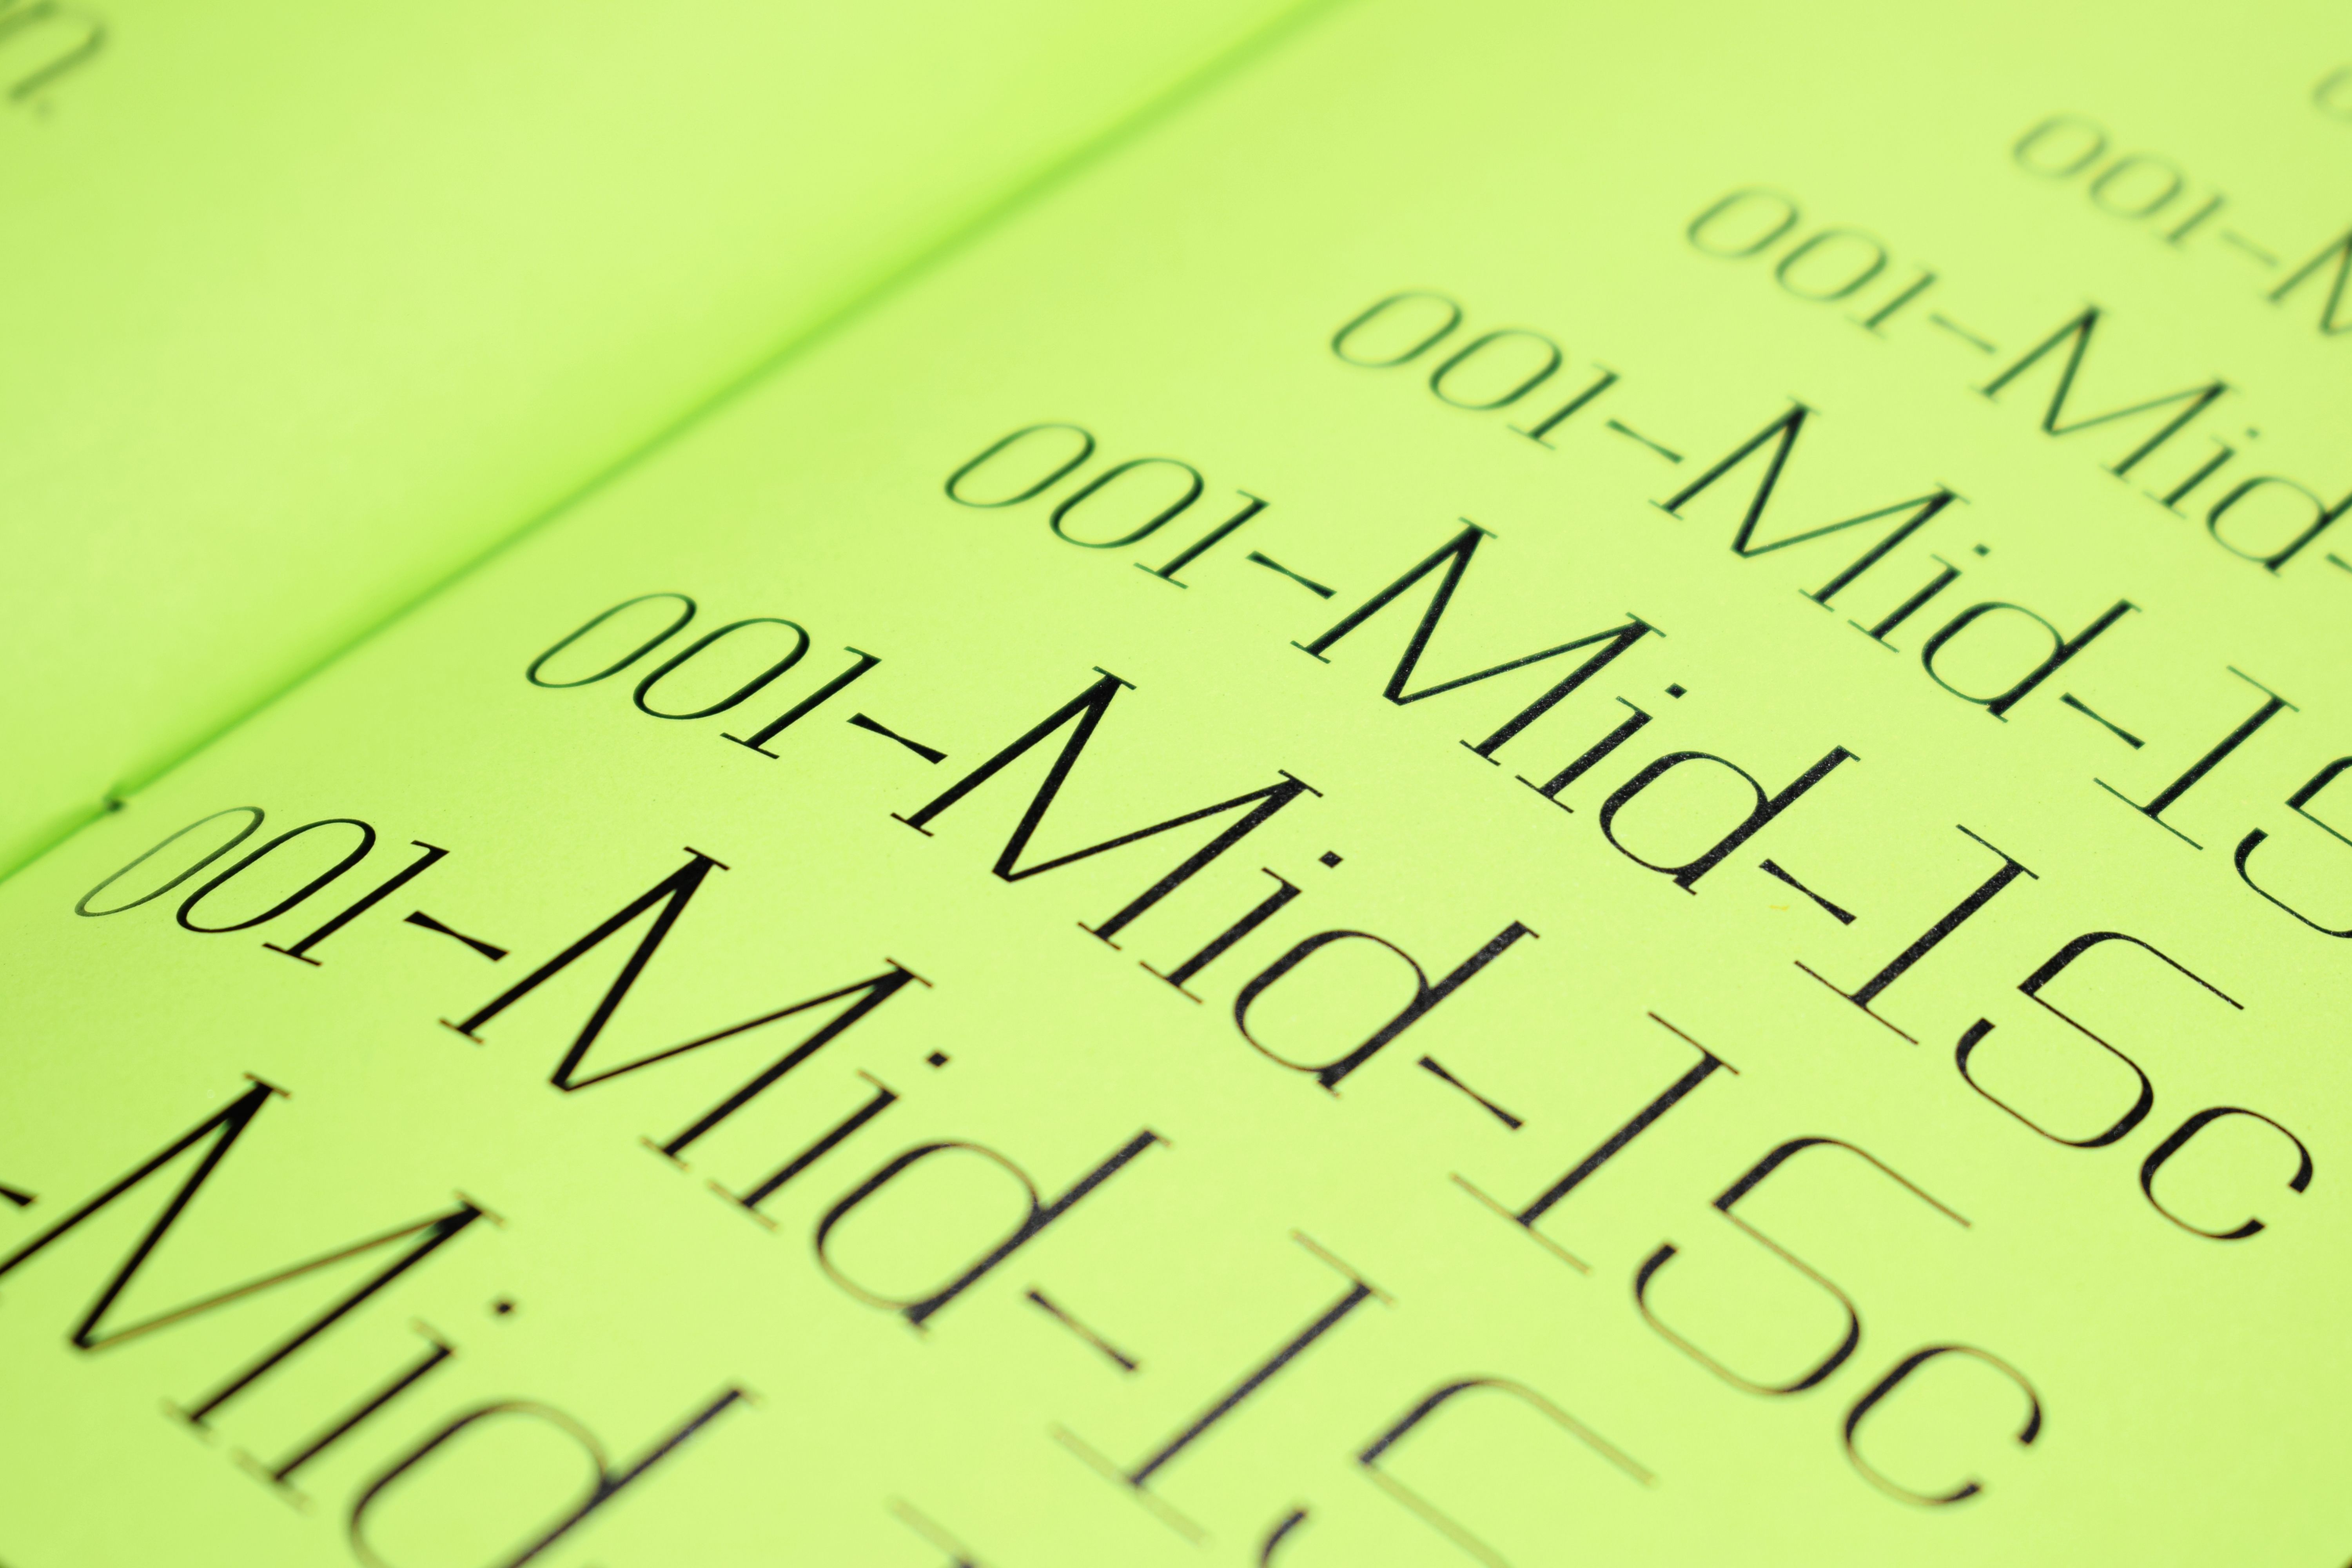 n.
001-M
001-Mid-
001-Mid-15
001-Mid-15c
001-Mid-15c
001-Mid-15
-Mid